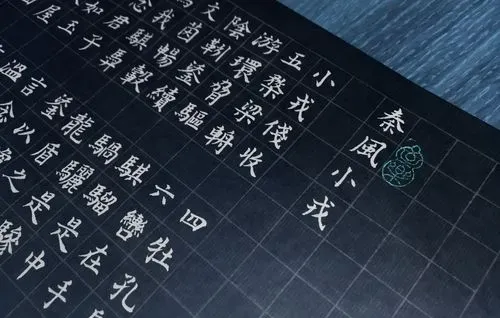 秦風小戎
小戎俴收
五楘梁輈
游環脅驅
陰靷鋈續
文茵暢轂
我騏馵
君子
玉
屋
四牡孔
六轡在手
騏騮是中
騧驪是驂
龍盾之
鋈以
言念
溫